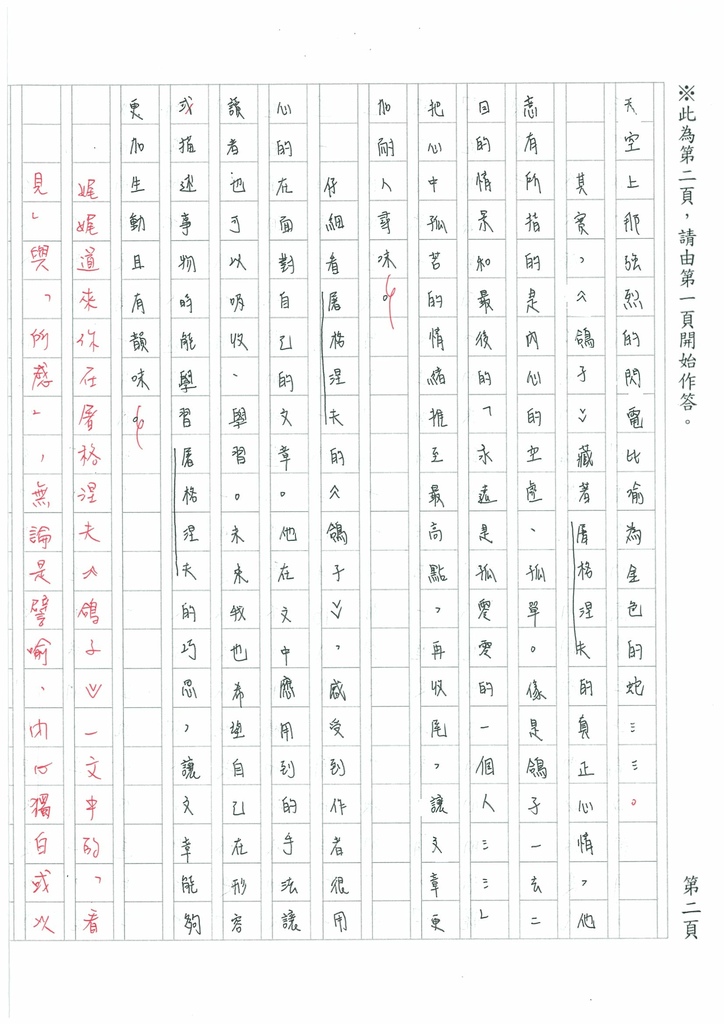 ※此為第二頁，請由第一頁開始作答。
第二頁
天空上那強烈的閃電比喻為金色的蛇……。
其實，《鴿子》藏著屠格涅夫的真正心情，他
意有所指的，是內心的空虛、孤單。像是鴿子一去二
回的情景和最後的「永遠是孤零零的一個人……」
把心中孤苦的情緒推至最高點，再收尾，讓文章更
加耐人尋味。
仔細看屠格涅夫的《鴿子》，感受到作者很用
心的在面對自己的文章。他在文中應用到的手法讓
讀者也可以吸收、學習。未來我也希望自己在形容
或描述事物時能學習屠格涅夫的巧思，讓文章能夠
更加生動且有韻味。
娓娓道來你在屠格涅夫《鴿子》一文中的「看
見」與「所感」，無論是譬喻、內心獨白或以